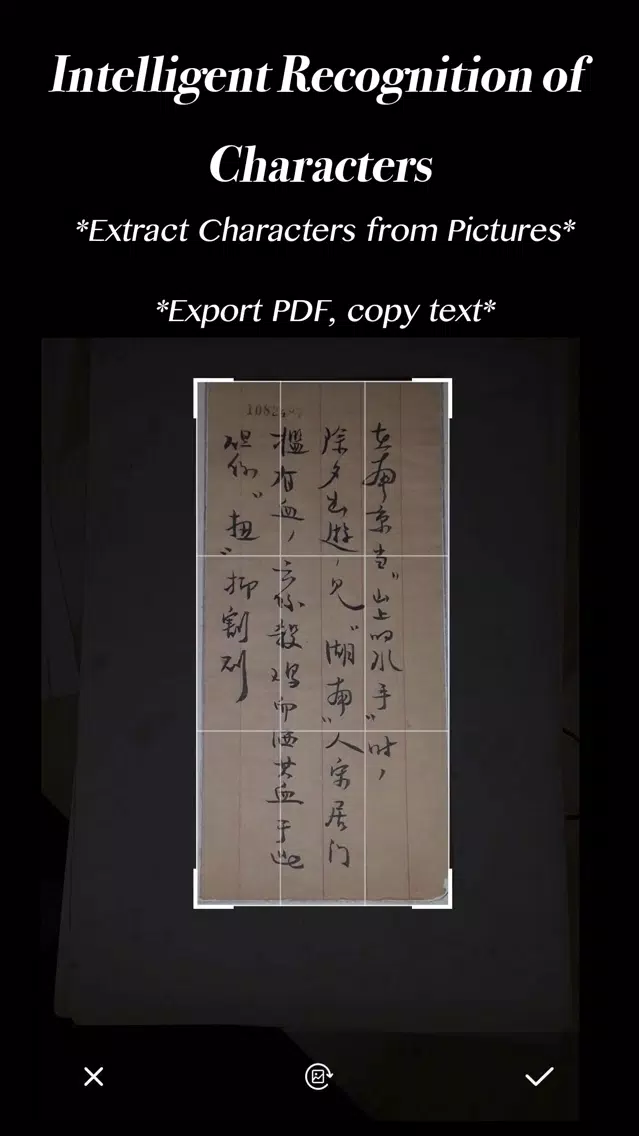 Intelligent Recognition of
Characters
*Extract Characters from Pictures*
*Export PDF, copy text*
在南京当"山上的水手"时，
除夕出遊，见"湖南"人家居门
檻有血，云係殺鸡而洒其血于此
"扭"抑割